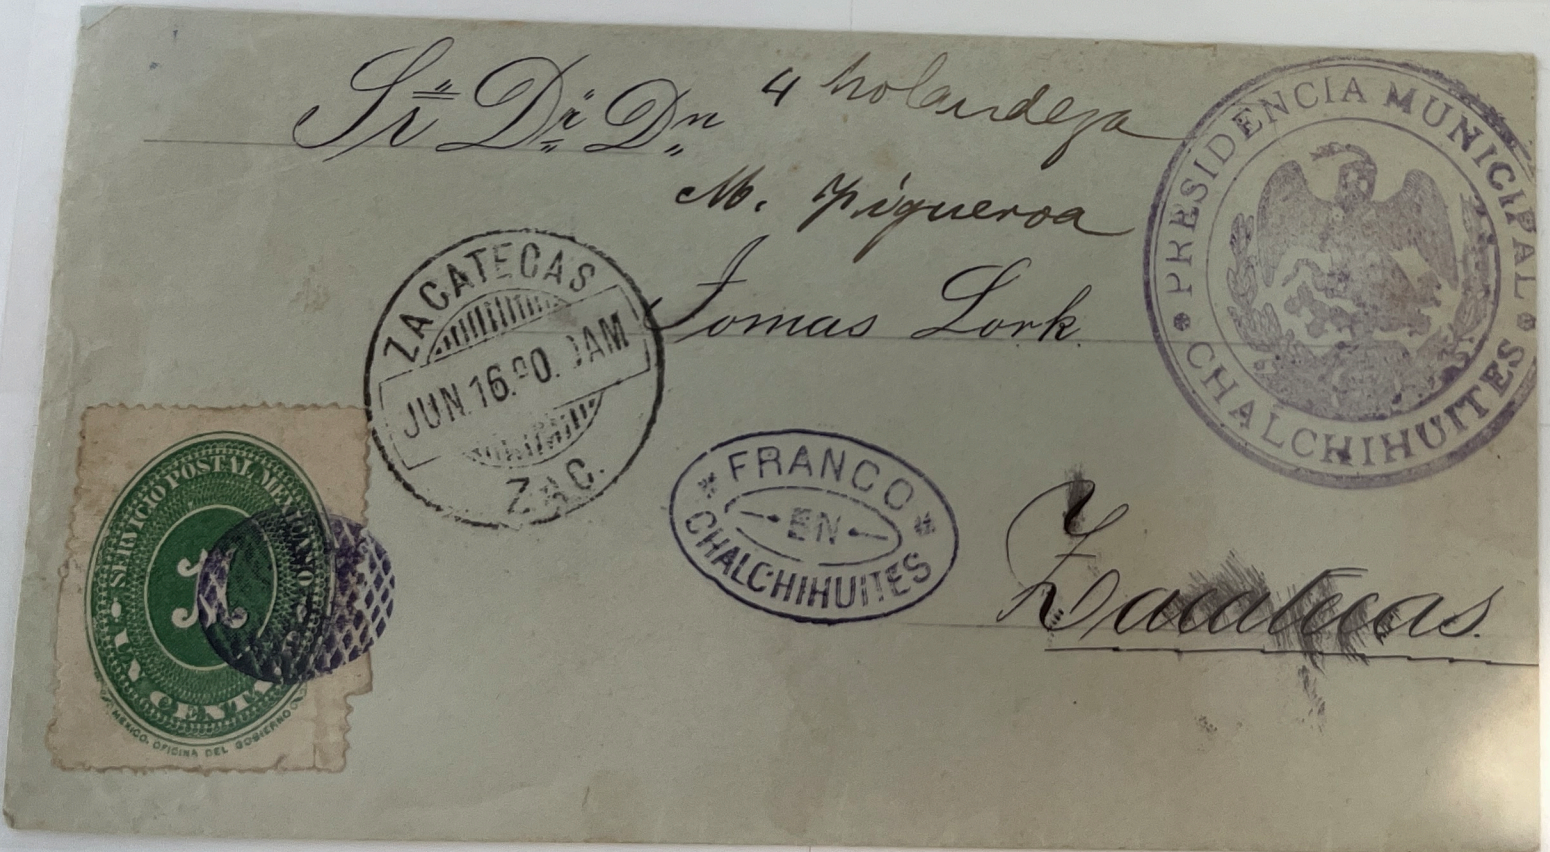 Sr. Dr. Dn
4 holandeza
M. Figueroa
Tomas Lork
Zacatecas.
PRESIDENCIA MUNICIPAL
CHALCHIHUITES
ZACATECAS
JUN 16. 90. AM
ZAC.
FRANCO
EN
CHALCHIHUITES
SERVICIO POSTAL MEXICANO
1
UN CENTAVO
MEXICO. OFICINA DEL GOBIERNO